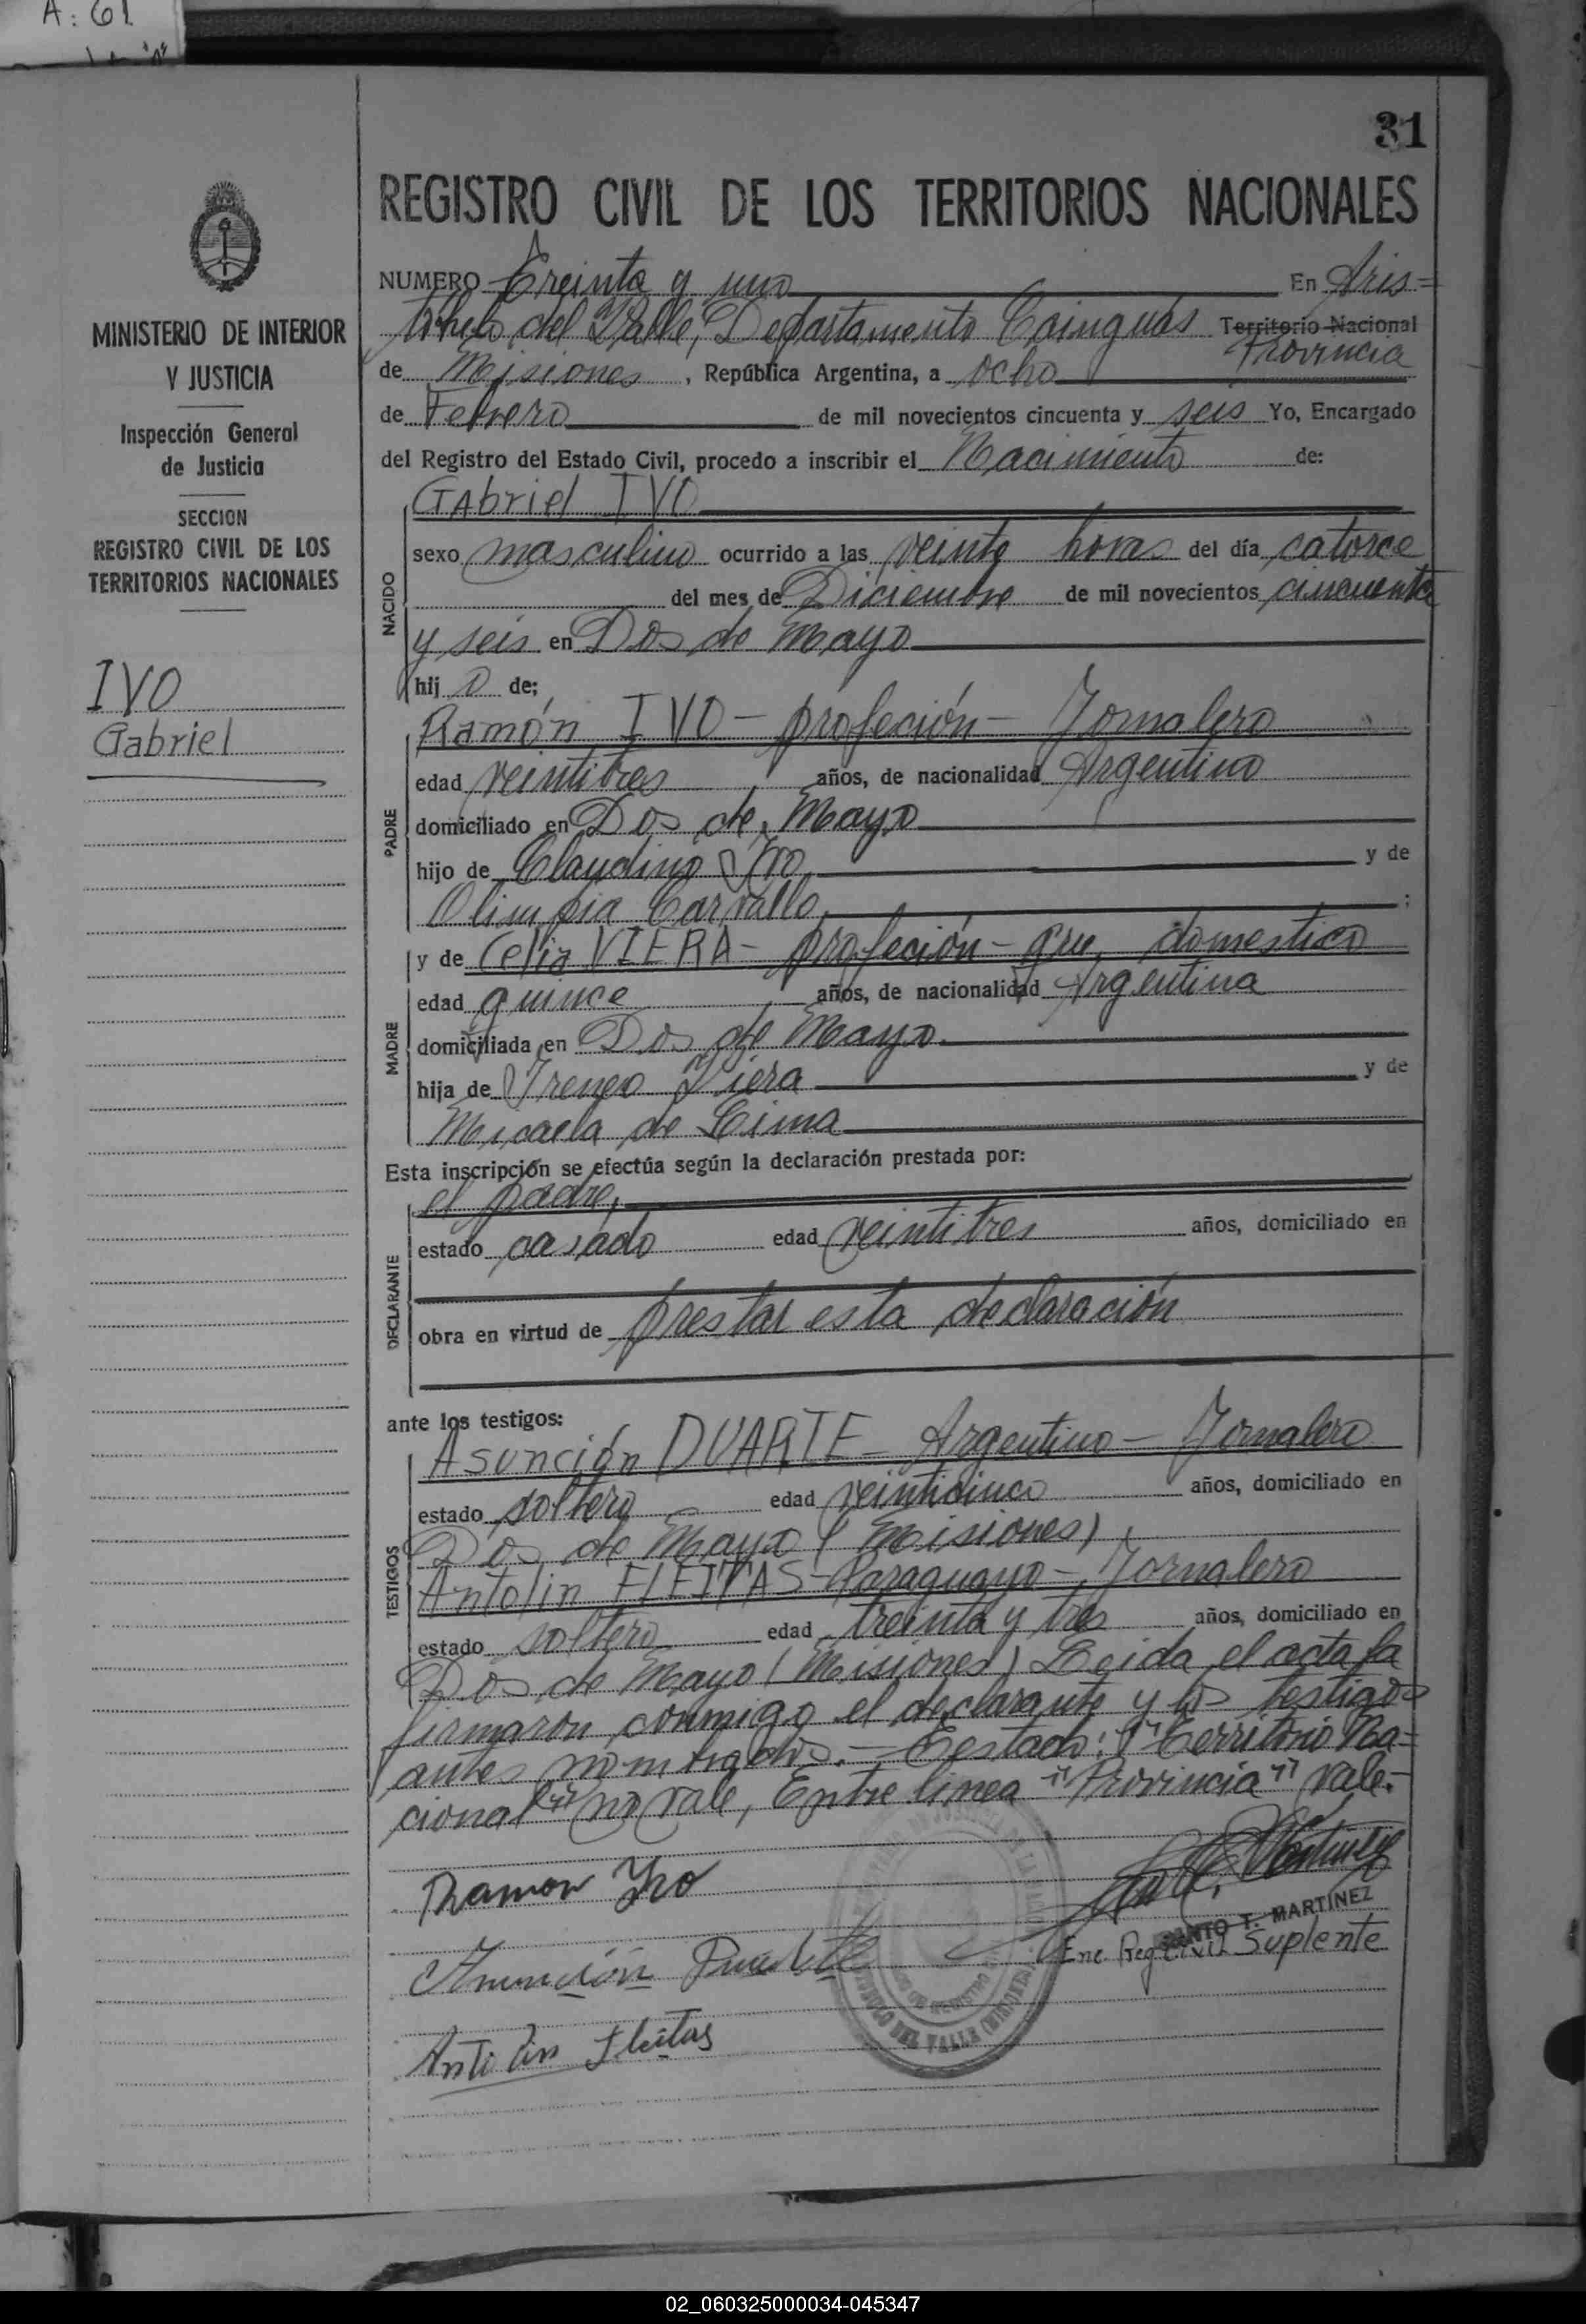 A: 61
31
REGISTRO CIVIL DE LOS TERRITORIOS NACIONALES
MINISTERIO DE INTERIOR
Y JUSTICIA
Inspección General
de Justicia
SECCION
REGISTRO CIVIL DE LOS
TERRITORIOS NACIONALES
IVO
Gabriel
NUMERO Treinta y uno En Aris=
tóbulo del Valle, Departamento Cainguás Territorio Nacional
Provincia
de Misiones, República Argentina, a ocho
de Febrero de mil novecientos cincuenta y seis Yo, Encargado
del Registro del Estado Civil, procedo a inscribir el Nacimiento de:
NACIDO
GAbriel IVO
sexo masculino ocurrido a las veinte horas del día catorce
del mes de Diciembre de mil novecientos cincuenta
y seis en Dos de Mayo
hij o de;
PADRE
Ramón IVO - profeción - Jornalero
edad veintitres años, de nacionalidad Argentino
domiciliado en Dos de Mayo
hijo de Claudino Ivo y de
Olimpia Carvallo ;
MADRE
y de Celia VIERA - profeción - que. domestico
edad quince años, de nacionalidad Argentina
domiciliada en Dos de Mayo
hija de Ireneo Viera y de
Micaela de Lima
Esta inscripción se efectúa según la declaración prestada por:
DECLARANTE
el padre,
estado casado edad veintitres años, domiciliado en
obra en virtud de prestar esta declaración
ante los testigos:
TESTIGOS
Asunción DUARTE - Argentino - Jornalero
estado soltero edad veinticinco años, domiciliado en
Dos de Mayo (Misiones)
Antolin FLEITAS - Paraguayo - Jornalero
estado soltero edad treinta y tres años, domiciliado en
Dos de Mayo (Misiones) Leida el acta la
firmaron conmigo el declarante y los testigos
antes nombrados. - Testado: "Territorio Na=
cional" no vale, Entre linea "Provincia" vale.-
Ramon Ivo
SANTO T. MARTINEZ
Enc. Reg Civil Suplente
Asunción Duarte
Antolin Fleitas
DEL VALLE (MISIONES)
02_060325000034-045347